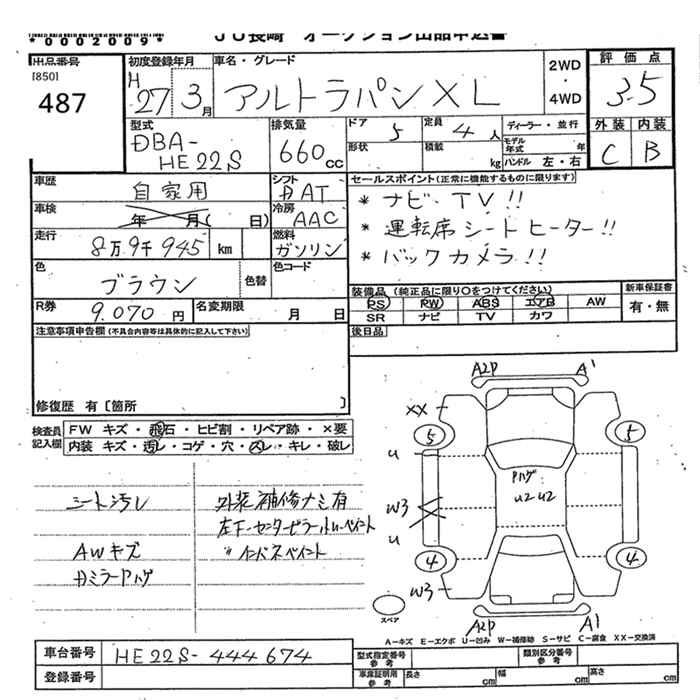 *0002009*
JU長崎 オークション出品申込書
出品番号
[850]
487
初度登録年月
H 27 3月
車名・グレード
アルトラパン XL
2WD
・
4WD
評価点
3.5
外装 内装
C B
型式
DBA-
HE22S
排気量
660cc
ドア 5
定員 4人
形状
積載 kg
ディーラー・並行
モデル年式 年
ハンドル 左・右
車歴
自家用
シフト
AT
セールスポイント(正常に機能するものに限ります)
* ナビ・TV!!
* 運転席シートヒーター!!
* バックカメラ!!
車検
年 月( 日)
冷房
AAC
走行
8万9千945 km
燃料
ガソリン
色
ブラウン
色替
色コード
R券
9.070円
名変期限 月 日
装備品(純正品に限り○をつけてください)
PS PW ABS エアB AW
SR ナビ TV カワ
新車保証書
有・無
注意事項申告欄(不具合内容等は具体的に記入して下さい)
後日品
修復歴 有[箇所 ]
検査員
記入欄
FW キズ・飛石・ヒビ割・リペア跡・×要
内装 キズ・汚レ・コゲ・穴・スレ・キレ・破レ
シート汚レ
AWキズ
ミラーハゲ
外装補修ナミ有
左F-センターピラー ペイント
〃 インパネペイント
A2P A1
XX
5 5
U
ハゲ
U2 U2
W3
U
4 4
W3
スペア
A2P A1
A-キズ E-エクボ U-凹み W-補修跡 S-サビ C-腐食 XX-交換済
車台番号
HE22S-444674
登録番号
型式指定番号
参考
類別区分番号
参考
車庫証明用
参考
長さ cm
幅 cm
高さ cm